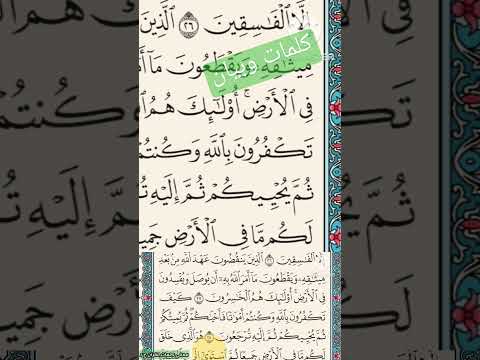 إِلَّا ٱلْفَٰسِقِينَ ٢٦ ٱلَّذِينَ
كلمات
مِيثَٰقِهِۦ وَيَقْطَعُونَ مَآ
فِي ٱلْأَرْضِ ۚ أُو۟لَٰٓئِكَ هُمُ
تَكْفُرُونَ بِٱللَّهِ وَكُنتُمْ
ثُمَّ يُحْيِيكُمْ ثُمَّ إِلَيْهِ
لَكُم مَّا فِي ٱلْأَرْضِ
إِلَّا ٱلْفَٰسِقِينَ ٢٦ ٱلَّذِينَ يَنقُضُونَ عَهْدَ ٱللَّهِ مِنۢ بَعْدِ
مِيثَٰقِهِۦ وَيَقْطَعُونَ مَآ أَمَرَ ٱللَّهُ بِهِۦٓ أَن يُوصَلَ وَيُفْسِدُونَ
فِي ٱلْأَرْضِ ۚ أُو۟لَٰٓئِكَ هُمُ ٱلْخَٰسِرُونَ ٢٧ كَيْفَ
تَكْفُرُونَ بِٱللَّهِ وَكُنتُمْ أَمْوَٰتًا فَأَحْيَٰكُمْ ۖ ثُمَّ يُمِيتُكُمْ
ثُمَّ يُحْيِيكُمْ ثُمَّ إِلَيْهِ تُرْجَعُونَ ٢٨ هُوَ ٱلَّذِي خَلَقَ
لَكُم مَّا فِي ٱلْأَرْضِ جَمِيعًا ثُمَّ ٱسْتَوَىٰٓ